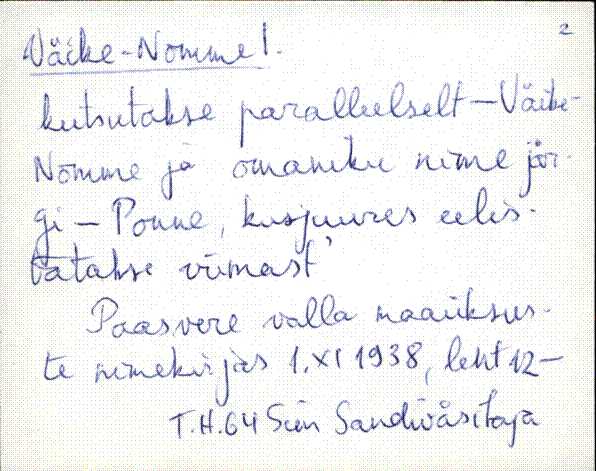 2
Väike-Nõmme 1.
kutsutakse paralleelselt – Väike-
Nõmme ja omaniku nime jär-
gi – Ponne, kusjuures eelis-
tatakse viimast
Paasvere valla maaüksus-
te nimekirjas 1.XI 1938, leht 12 –
T.H.64 Siin